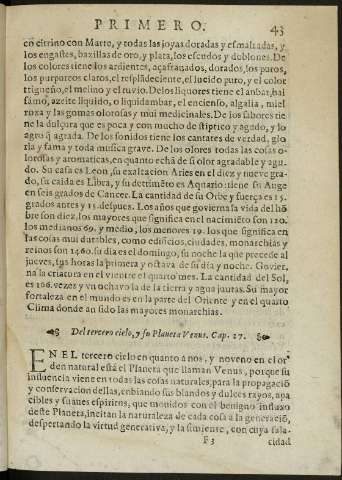 PRIMERO. 43
cõ citrino con Marte, y todas las joyas doradas y esmaltadas, y
los engastes, baxillas de oro, y plata, los escudos y doblones. De
los colores tiene los ardientes, açafranados, dorados, los puros,
los purpureos claros, el resplãdeciente, el lucido puro, y el color
trigueño, el melino y el ruvio. De los liquores tiene el ambar, bal
samo, azeite liquido, o liquidambar, el encienso, algalia, miel
roxa y las gomas olorosas y mui medicinales. De los sabores tie
ne la dulçura que es poca y con mucho de stiptico y agudo, y lo
agro q̃ agrada. De los sonidos tiene los cantares de verdad, glo
ria y fama y toda musica grave. De los olores todas las cosas o-
lorosas y aromaticas, en quanto echã de si olor agradable y agu-
do. Su casa es Leon, su exaltacion Aries en el diez y nueve gra-
do, su caida es Libra, y su detrimẽto es Aquario: tiene su Auge
en seis grados de Cancer. La cantidad de su Orbe y fuerça es 15.
grados antes y 15. despues. Los años que govierna la vida del hõ
bre son diez, los mayores que significa en el nacimiẽto son 120.
los medianos 69. y medio, los menores 19. los que significa en
las cosas mui durables, como edificios, ciudades, monarchias y
reinos son 1460. su dia es el domingo, su noche la que precede al
jueves, sus horas la primera y octava de su dia y noche. Govier,
na la criatura en el vientre el quarto mes. La cantidad del Sol,
es 166. vezes y vn ochavo la de la tierra y agua juntas. Su mayor
fortaleza en el mundo es en la parte del Oriente y en el quarto
Clima donde an sido las mayores monarchias.
Del tercero cielo, y su Planeta Venus. Cap. 27.
EN EL tercero cielo en quanto a nos, y noveno en el or
den natural está el Planeta que llaman Venus, porque su
influencia viene en todas las cosas naturales, para la propagació
y conservacion dellas, embiando sus blandos y dulces rayos, apa
cibles y suaves espiritus, que movidos con el benigno influxo
deste Planeta, incitan la naturaleza de cada cosa a la generació,
despertando la virtud generativa, y la simiente, con cuya sala-
F 3 cidad